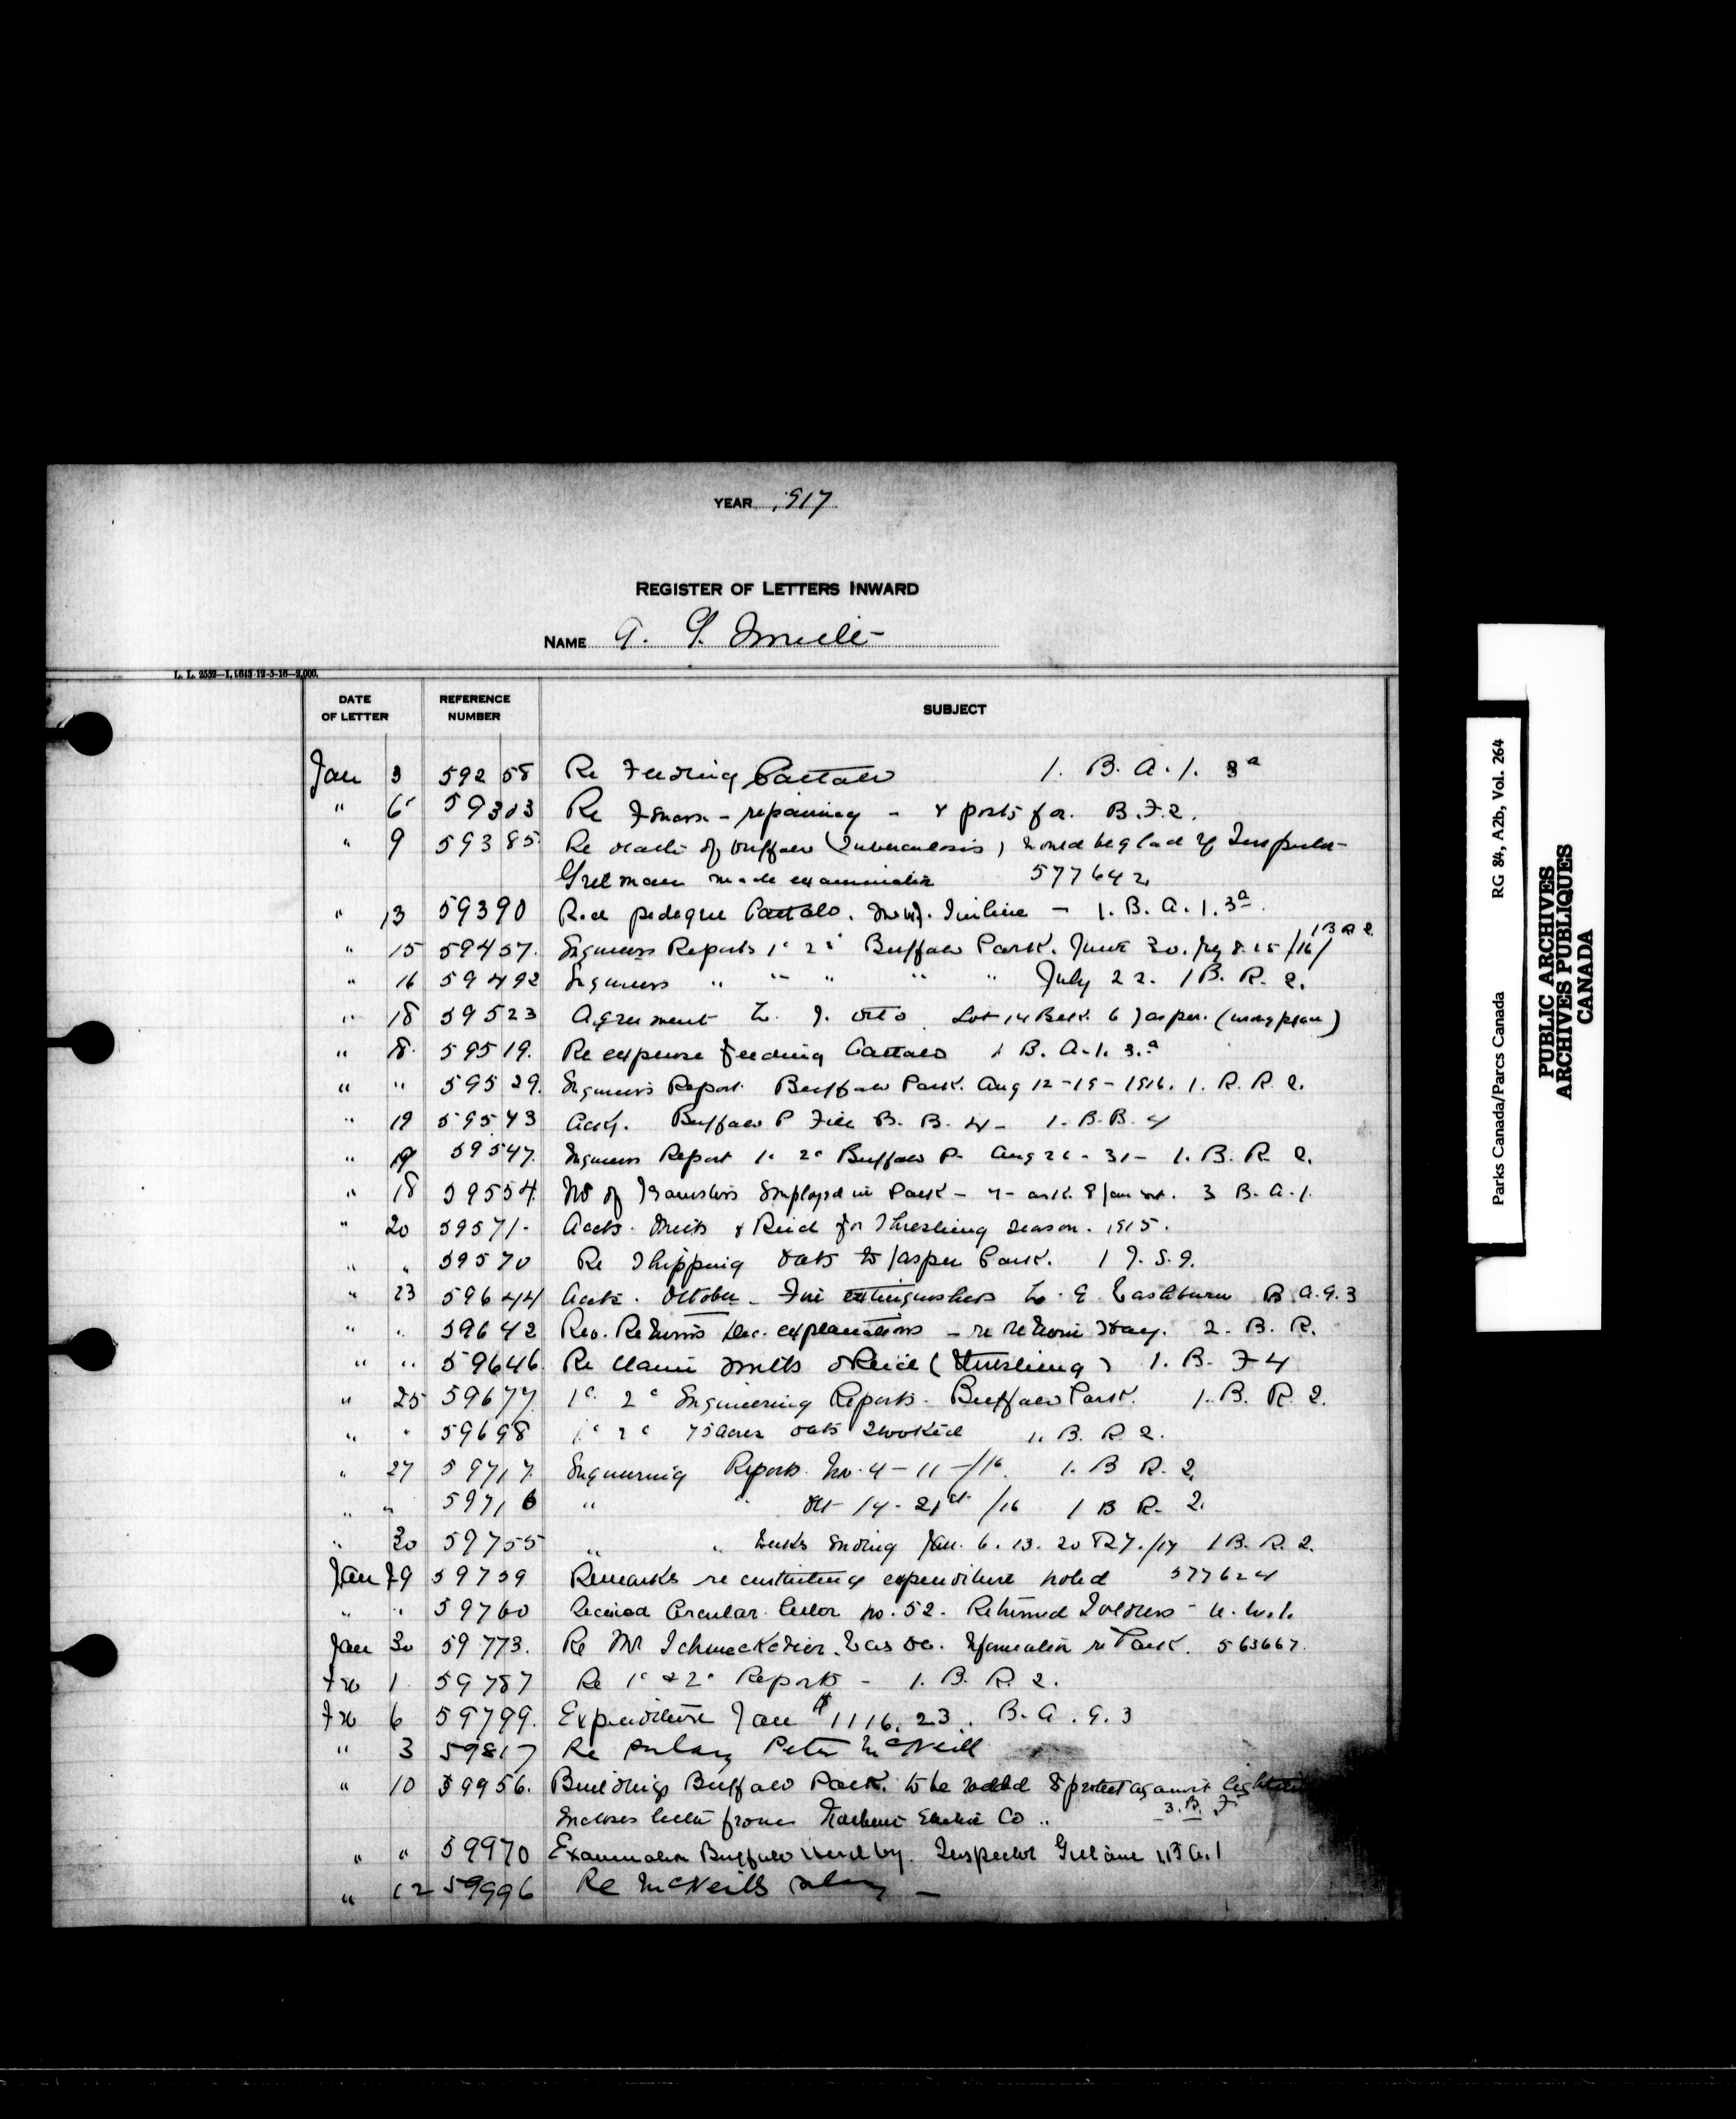 YEAR 1917
REGISTER OF LETTERS INWARD
NAME A. G. Smith
L. L. 2532—L 1643-12-5-16—2,000.
DATE OF LETTER REFERENCE NUMBER SUBJECT
Jan 3 59258 Re Feeding Cattalo 1. B. A. 1. 3a
" 6 59303 Re repairing - & posts for. B. F. 2.
" 9 59385 Re death of Buffalo (Tuberculosis) would be glad if Inspector
made examination 577642
" 13 59390 Cattalo. - 1. B. A. 1. 3a
" 15 59457. Engineers Reports 1c 2c Buffalo Park. June 30. July 8. 15 /16/ 1 B R 2
" 16 59492 Engineers " " " " " July 22. 1 B. R. 2.
" 18 59523 Agreement Otto Lot 14 Block 6 Jasper.
" 18. 59519. Re expense feeding Cattalo 1 B. A. 1. 3.a
" " 59529. Engineers Report Buffalo Park. Aug 12-19-1916. 1. R. R. 2.
" 19 59543 Buffalo P File B. B. 4- 1. B. B. 4
" 19 59547. Engineers Report 1c 2c Buffalo P- Aug 26 - 31- 1. B. R. 2.
" 18 59554 No of Teamsters Employed in Park - 3 B. A. 1.
" 20 59571- Accts. Smith & Reid for Threshing season. 1915.
" " 59570 Re Shipping Oats to Jasper Park. 1 J. S. 9.
" 23 59644 Accts. October - Fire extinguishers Washburn B. A. 9. 3
" " 59642 Rev. Returns Dec. explanations - re return Hay. 2. B. R.
" " 59646. Re claim Smith & Reid (Threshing) 1. B. F 4
" 25 59677 1c. 2c Engineering Reports. Buffalo Park. 1. B. R. 2.
" " 59698 1c 2c 75 acres oats stooked 1. B. R. 2.
" 27 59717. Engineering Reports Nov. 4 - 11 -/16. 1. B R. 2.
" " 59716 " " Oct 14 - 21st /16 1 B R. 2.
" 30 59755 " " Weeks Ending Jan. 6. 13. 20 & 27. /17 1 B. R. 2.
Jan 29 59759 Remarks re expenditure noted 577624
" " 59760 Received Circular letter no. 52. Returned Soldiers - U. W. 1.
Jan 30 59773. Re Mr Information re Park. 563667.
Feb 1 59787 Re 1c & 2c Reports - 1. B. R. 2.
Feb 6 59799. Expenditure Jan $1116.23. B. A. 9. 3
" 3 59817 Re salary Peter McNeill
" 10 59956. Buildings Buffalo Park. to be rodded & protect against lightning
Incloses letter from Northern Electric Co .. 3. B. F
" " 59970 Examination Buffalo Herd by. Inspector 1 B A. 1
" 12 59996 Re McNeills salary -
Parks Canada/Parcs Canada RG 84, A2b, Vol. 264
PUBLIC ARCHIVES
ARCHIVES PUBLIQUES
CANADA